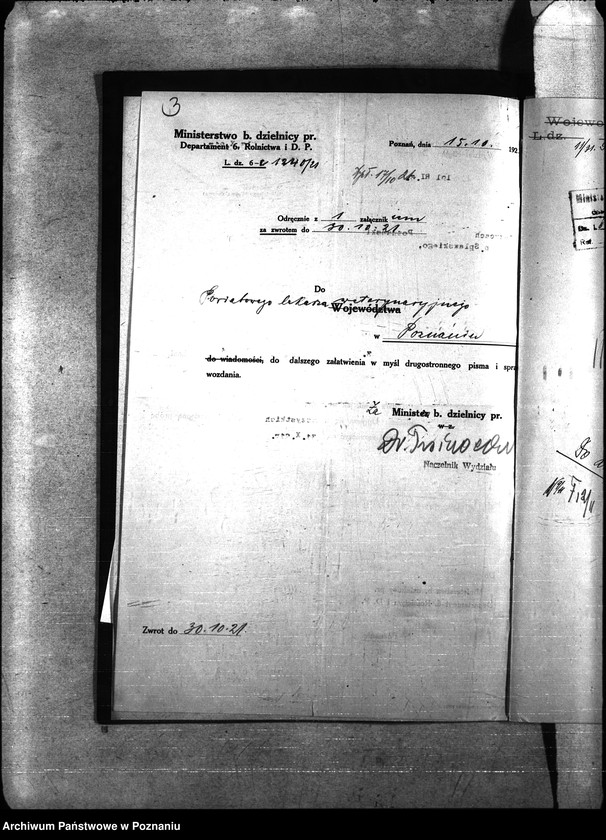 3
Ministerstwo b. dzielnicy pr.
Departament 6. Rolnictwa i D. P.
L. dz. 6-e 1240/21
Poznań, dnia 15.10. 192
Odręcznie z 1 załącznikiem
za zwrotem do 30.10.21.
Do
Powiatowego lekarza weterynaryjnego
Województwa
w Poznaniu
do wiadomości, do dalszego załatwienia w myśl drugostronnego pisma i spra
wozdania.
Za Minister b. dzielnicy pr.
wz
Dr.
Naczelnik Wydziału
Zwrot do 30.10.21.
Wojewo
L. dz.
Archiwum Państwowe w Poznaniu